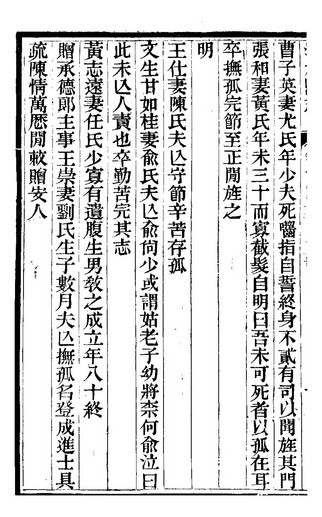 曹子英妻尤氏年少夫死囓指自誓終身不貳有司以聞旌其門
張和妻黃氏年未三十而寡截髮自明曰吾未可死者以孤在耳
卒撫孤完節至正閒旌之
明
王仕妻陳氏夫亾守節辛苦存孤
文生甘如桂妻兪氏夫亾兪尙少或謂姑老子幼將柰何兪泣曰
此未亾人責也卒勤苦完其志
黃志遠妻任氏少寡有遺腹生男敎之成立年八十終
贈承德郎主事王崇妻劉氏生子數月夫亾撫孤名登成進士具
疏陳情萬厯閒敕贈安人